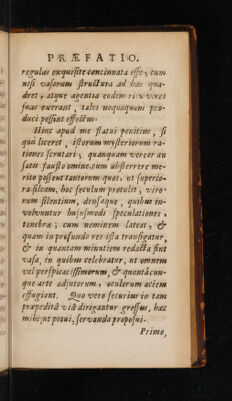 PRÆFATIO.
regulas exquisite concinnata esse, cum
nisi vasorum structura ad has qua-
dret, atque agentia eodem ritu vires
suas exerant, tales nequaquam pro-
duci possint effectus.
Hinc apud me statui penitius, si
quà liceret, istorum mysteriorum ra-
tiones scrutari; quanquam vererer an
satis fausto omine, cum absterrere me-
rito possent tantorum, quos, ut superio-
ra sileam, hoc seculum protulit, viro-
rum silentium, densæque, quibus in-
volvuntur hujusmodi speculationes,
tenebræ; cum neminem lateat, &
quam in profundo res ista transigatur,
& in quantam minutiem redacta sint
vasa, in quibus celebratur, ut omnem
vel perspicacissimorum, & quantâcun-
que arte adjutorum, oculorum aciem
effugiant. Quo vero securius in tam
præpeditâ viâ dirigantur gressus, hæc
mihi, ut potui, servanda proposui.
Primo,